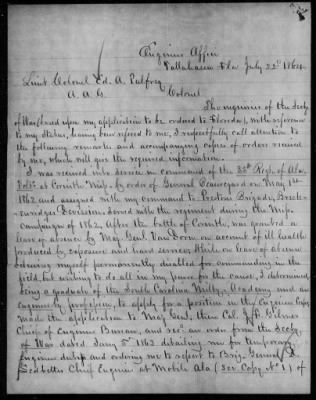 Engineer Office
Tallahassee Fla July 22d 1864
Lieut Colonel Ed. A. Palfrey
A. A. G.
Colonel
The inquiries of the Secty
of War based upon my application to be ordered to Florida, with reference
to my status, having been referred to me, I respectfully call attention to
the following remarks and accompanying copies of orders received
by me, which will give the required information.
I was received into service in command of the 35th Reg. of Ala.
Vols. at Corinth Miss. by order of General Beauregard on May 1st
1862 and assigned with my command to Prestons Brigade, Breck-
enridges Division served with the regiment during the Miss.
campaign of 1862. After the battle of Corinth, was granted a
leave of absence by Maj. Genl. Van Dorn on account of ill health
produced by exposure and hard service, while on leave of absence
finding myself permanently disabled for commanding in the
field, but wishing to do all in my power for the cause, I determined,
being a graduate of the South Carolina Milty. Academy and an
Engineer by profession, to apply for a position in the Engineer Corps
made the application to Maj. Genl. then Col. J. F. Gilmer
Chief of Engineer Bureau, and recd. an order from the Secty.
of War dated Jany 5th 1862 detailing me for temporary
Engineer duty and ordering me to report to Brig. General D.
Leadbetter Chief Engineer at Mobile Ala (See Copy No 1) of